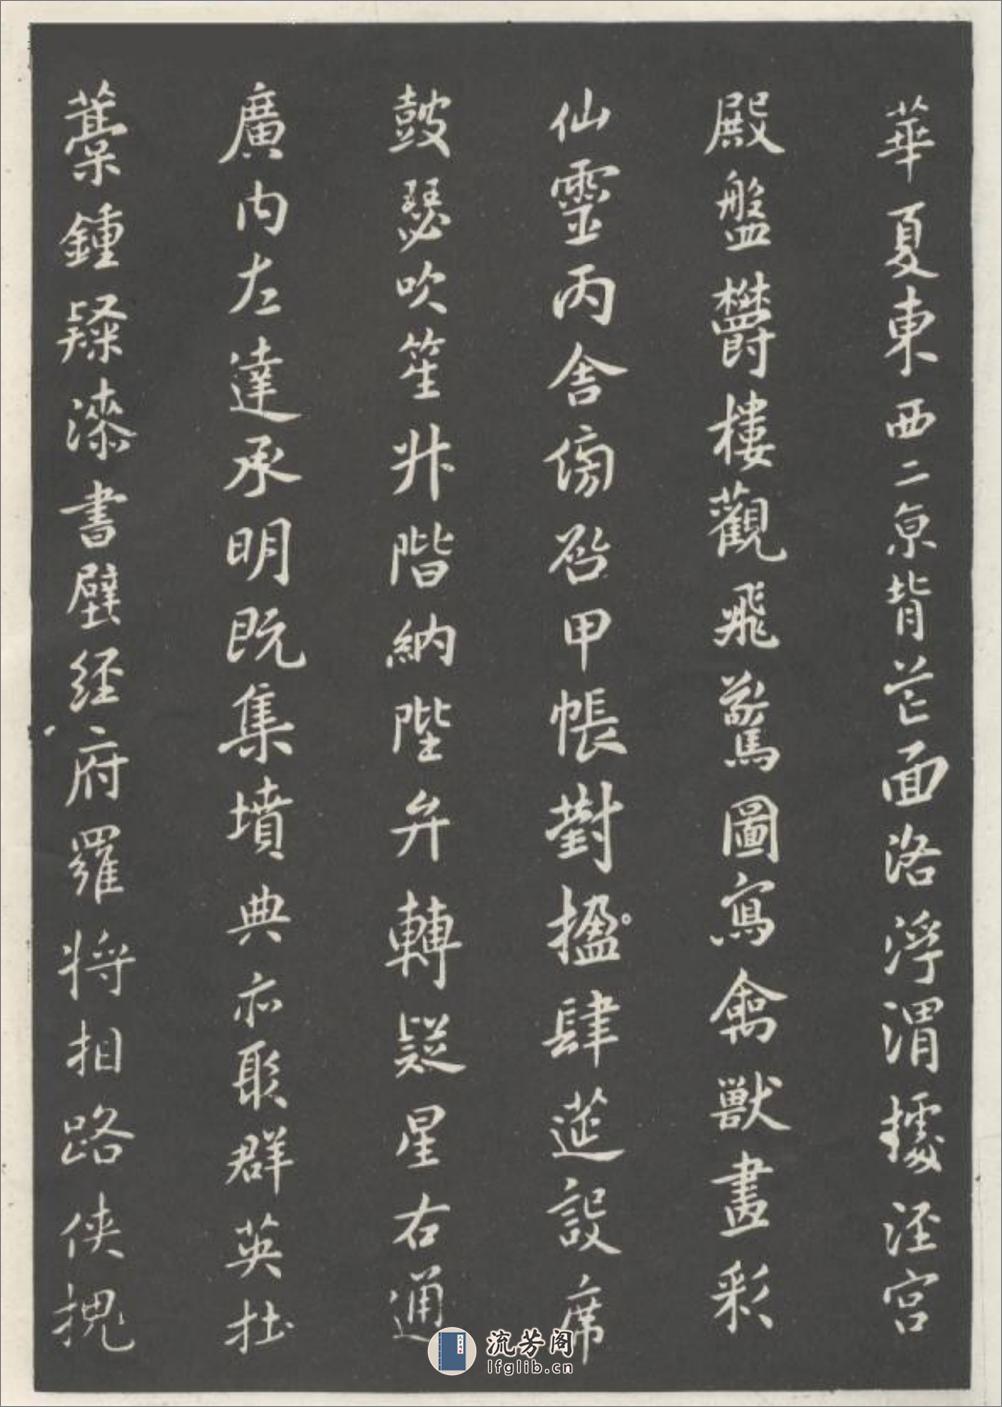 華夏東西二京背芒面洛浮渭據涇宮
殿盤欝樓觀飛驚圖寫禽獸畫彩
仙靈丙舍傍啓甲帳對楹肆莚設席
鼓瑟吹笙升階納陛弁轉疑星右通
廣內左達承明既集墳典亦聚群英杜
藁鍾隸漆書壁經府羅將相路俠槐
流芳阁
lfglib.cn